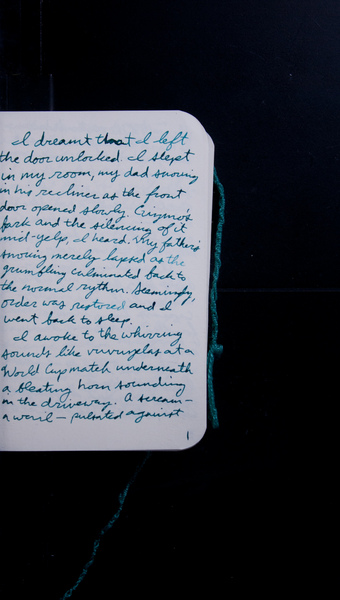 I dreamt that I left
the door unlocked. I slept
in my room, my dad snoring
in his recliner as the front
door opened slowly. Gizmo's
bark and the silencing of it
mid-yelp, I heard. My father's
snoring merely lapsed as the
grumbling culminated back to
the normal rythm. Seemingly,
order was restored and I
went back to sleep.
I awoke to the whirring
sounds like vuvuzelas at a
World Cup match underneath
a bleating horn sounding
in the driveway. A scream—
a wail— pulsated against
1